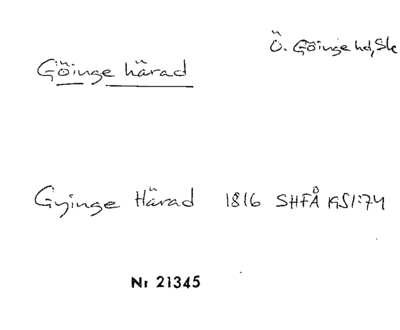 Ö. Göinge hd, Sk
Göinge härad
Gyinge Härad 1816 SHFÅ KS1:74
Nr 21345